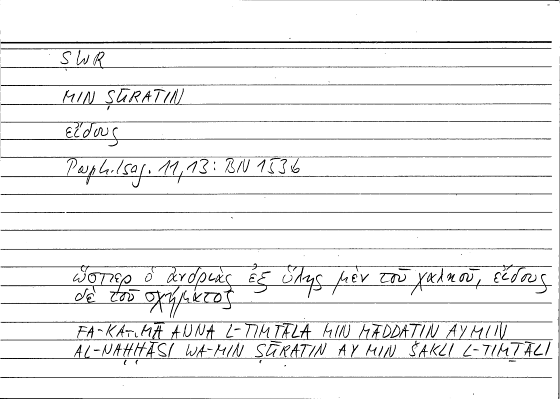 ṢWR
MIN ṢŪRATIN
εἴδους
Porph. Isag. 11,13: BN 153b
ὥσπερ ὁ ἀνδριὰς ἐξ ὕλης μὲν τοῦ χαλκοῦ, εἴδους
δὲ τοῦ σχήματος
ANNA L-TIMṮĀLA MIN MĀDDATIN AY MIN
AL-NAḤḤĀSI WA-MIN ṢŪRATIN AY MIN ŠAKLI L-TIMṮĀLI